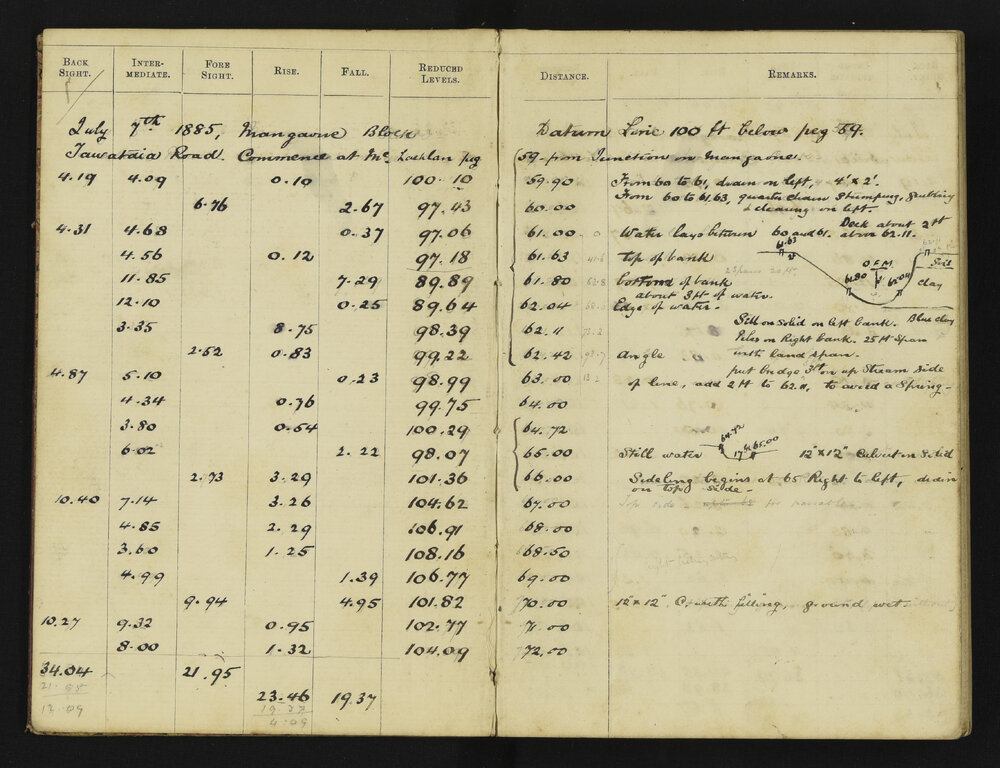 BACK SIGHT. INTERMEDIATE. FORE SIGHT. RISE. FALL. REDUCED LEVELS. DISTANCE. REMARKS.
July 7th 1885, Mangaone Block Datum Line 100 ft below peg 59.
Tawataia Road. Commence at Mc Lachlan peg 59 from Junction on Mangaone.
4.19 4.09 0.10 100.10 59.90 From 60 to 61, drain on left, 4' x 2'.
From 60 to 61.63, quarter chain Stumping, Grubbing
& clearing on left.
6.76 2.67 97.43 60.00
Deck about 2 ft
4.31 4.68 0.37 97.06 61.00 Water lays between 60 and 61. above 62.11.
4.56 0.12 97.18 61.63 top of bank
61.63
11.85 7.29 89.89 61.80 bottom of bank
about 3 ft of water.
61.80 62.04 clay
12.10 0.25 89.64 62.04 Edge of water.
Blue clay
3.35 8.75 98.39 62.11 Sill on Solid on left bank.
Piles on Right bank. 25 ft Span
2.52 0.83 99.22 62.42 angle with land span.
put bridge 3 ft on up Stream Side
4.87 5.10 0.23 98.99 63.00 of line, add 2 ft to 62.11, to avoid a Spring-
4.34 0.76 99.75 64.00
3.80 0.54 100.29 64.72
64.72 65.00
6.02 2.22 98.07 65.00 Still water 12" x 12" Culvert in Solid
2.73 3.29 101.36 66.00 Sideling begins at 65 Right to left, drain
on top side-
10.40 7.14 3.26 104.62 67.00
4.85 2.29 106.91 68.00
3.60 1.25 108.16 68.50
4.99 1.39 106.77 69.00
9.94 4.95 101.82 70.00 12" x 12" C, with filling, ground wet.
10.27 9.32 0.95 102.77 71.00
8.00 1.32 104.09 72.00
34.04 21.95
21.95 23.46 19.37
12.09 19.37
4.09